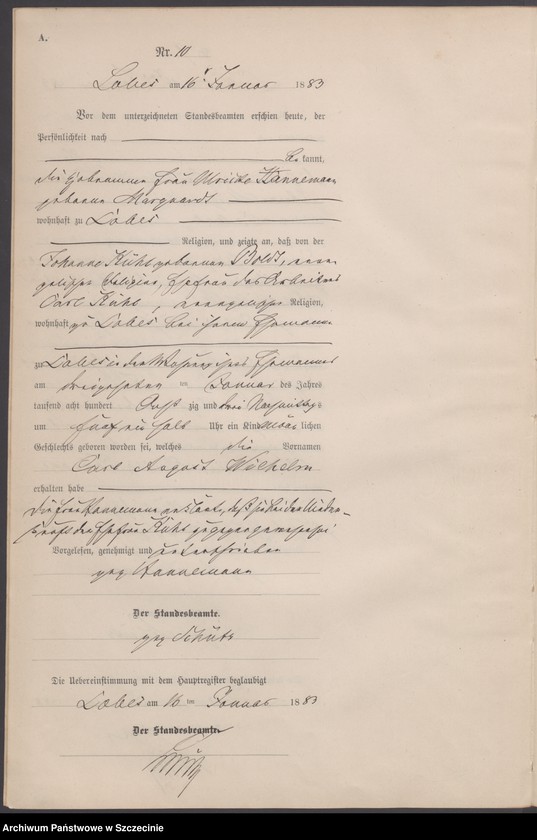 A.
Nr. 10
Labes am 16 Januar 1883
Vor dem unterzeichneten Standesbeamten erschien heute, der
Persönlichkeit nach
be kannt,
die Hebamme Frau Ulricke Hannemann
geborene Marquardt
wohnhaft zu Labes
Religion, und zeigte an, daß von der
Johanne Kühl, geborenen Boldt, evan-
gelischer Religion, Ehefrau des Arbeiters
Carl Kühl, evangelischer Religion,
wohnhaft zu Labes bei ihrem Ehemanne
zu Labes in der Wohnung ihres Ehemannes
am dreizehnten ten Januar des Jahres
tausend acht hundert Acht zig und drei Nachmittags
um fünf ein halb Uhr ein Kind männ lichen
Geschlechts geboren worden sei, welches die Vornamen
Carl August Wilhelm
erhalten habe
Die Frau Hannemann erklärte, daß sie bei der Nieder-
kunft der Ehefrau Kühl zugegen gewesen sei
Vorgelesen, genehmigt und unterschrieben
gez Hannemann
Der Standesbeamte.
gez Schütz
Die Uebereinstimmung mit dem Hauptregister beglaubigt
Labes am 16 ten Januar 1883
Der Standesbeamte
Archiwum Państwowe w Szczecinie